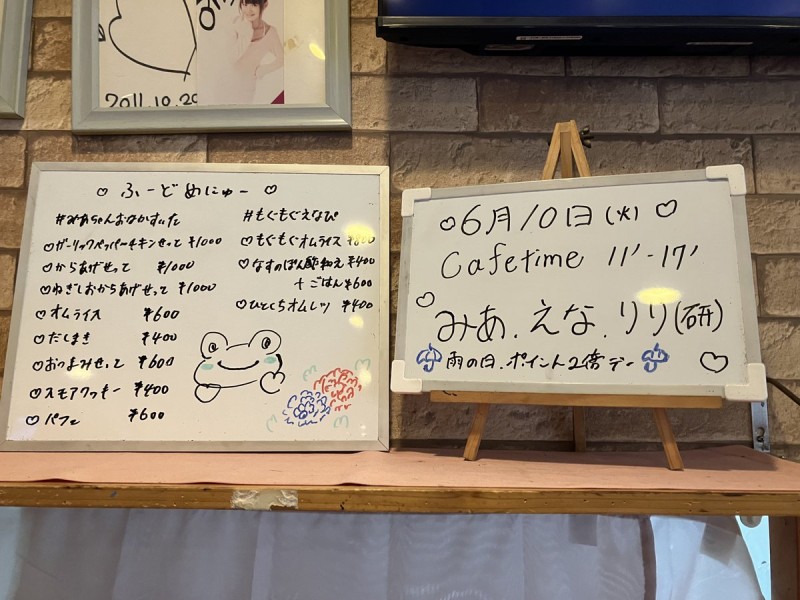 2011.10.20
♡ ふーどめにゅー ♡
#みあちゃんおなかすいた
♡ガーリックペッパーチキンせって ¥1000
♡からあげせって ¥1000
♡ねぎしおからあげせって ¥1000
♡オムライス ¥600
♡だしまき ¥400
♡おつまみせって ¥600
♡スモアクッキー ¥400
♡パフェ ¥600
#もぐもぐえなぴ
♡もぐもぐオムライス
♡なすのぽん酢和え ¥400
+ごはん ¥600
♡ひとくちオムレツ ¥400
♡6月10日(火)♡
Cafetime 11'-17'
♡みあ.えな.リリ(研)
雨の日.ポイント2倍デー